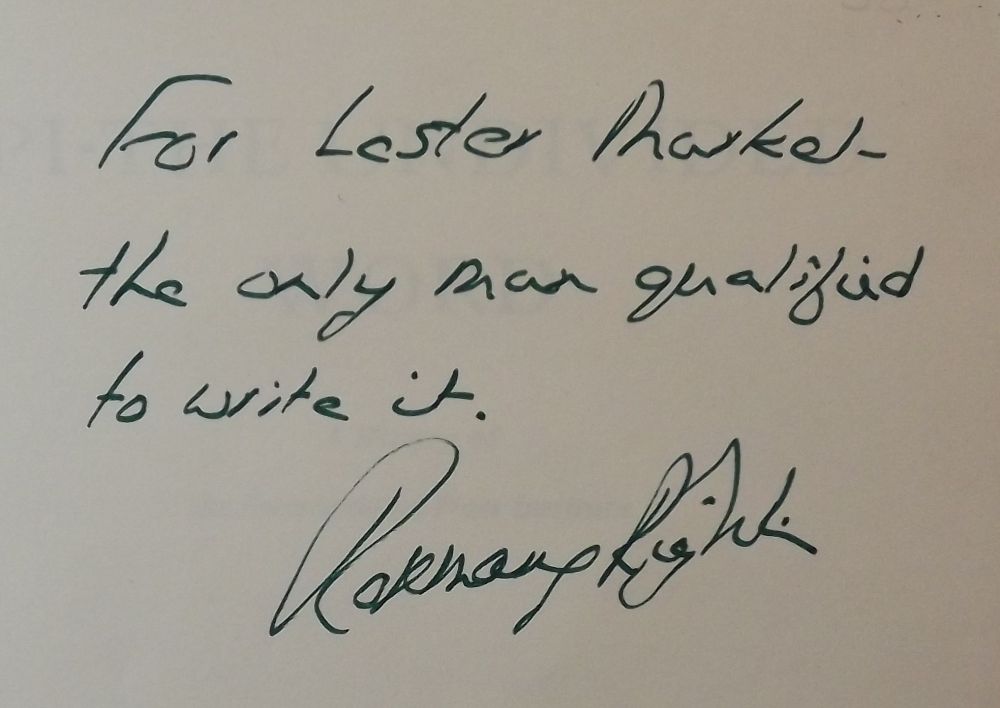 For Lester Markel -
the only man qualified
to write it.
Rosemary Righter